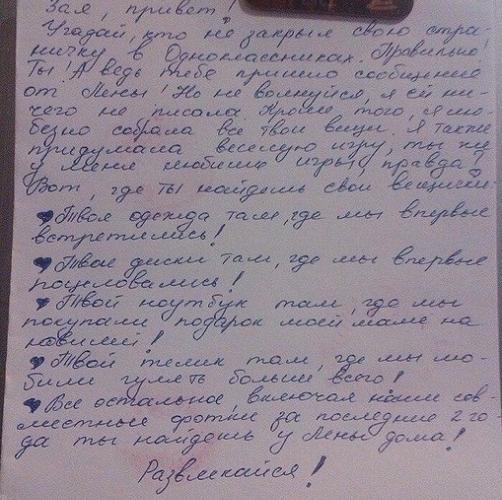 Зая, привет!
Угадай, кто не закрыл свою стра-
ничку в Одноклассниках. Правильно!
Ты! А ведь тебе пришло сообщение
от Лены! Но не волнуйся, я ей ни-
чего не писала. Кроме того, я лю-
безно собрала все твои вещи. Я также
придумала веселую игру, ты же
у меня любишь игры, правда?
Вот, где ты найдешь свои вещички:
♥Твоя одежда там, где мы впервые
встретились!
♥Твои диски там, где мы впервые
поцеловались!
♥Твой ноутбук там, где мы
покупали подарок моей маме на
юбилей!
♥Твой телик там, где мы лю-
били гулять больше всего!
♥Все остальное включая наши сов-
местные фотки за последние 2 го-
да ты найдешь у Лены дома!
Развлекайся!